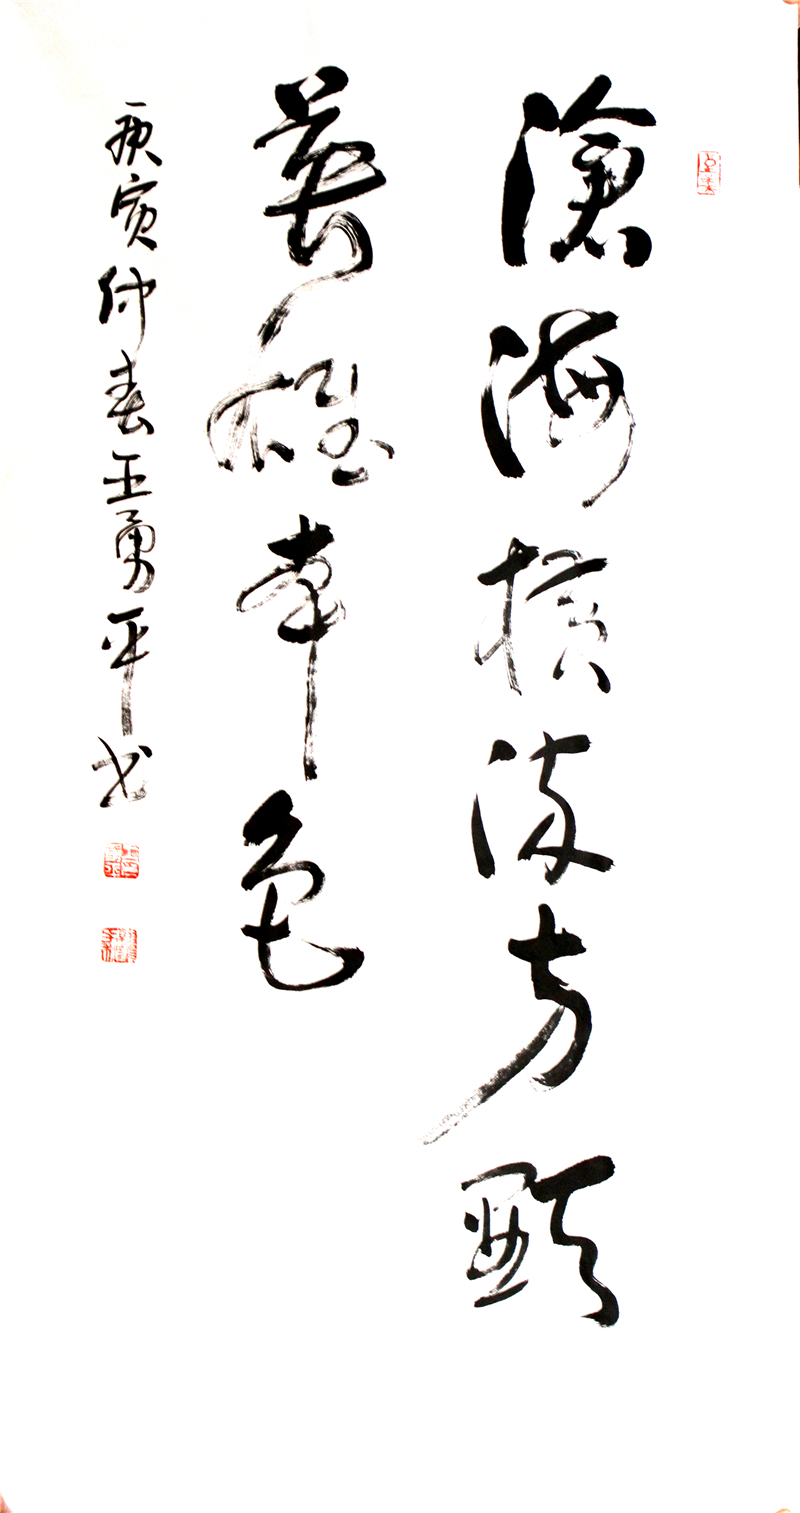 滄海橫流方顯
英雄本色
庚寅仲春王勇平书